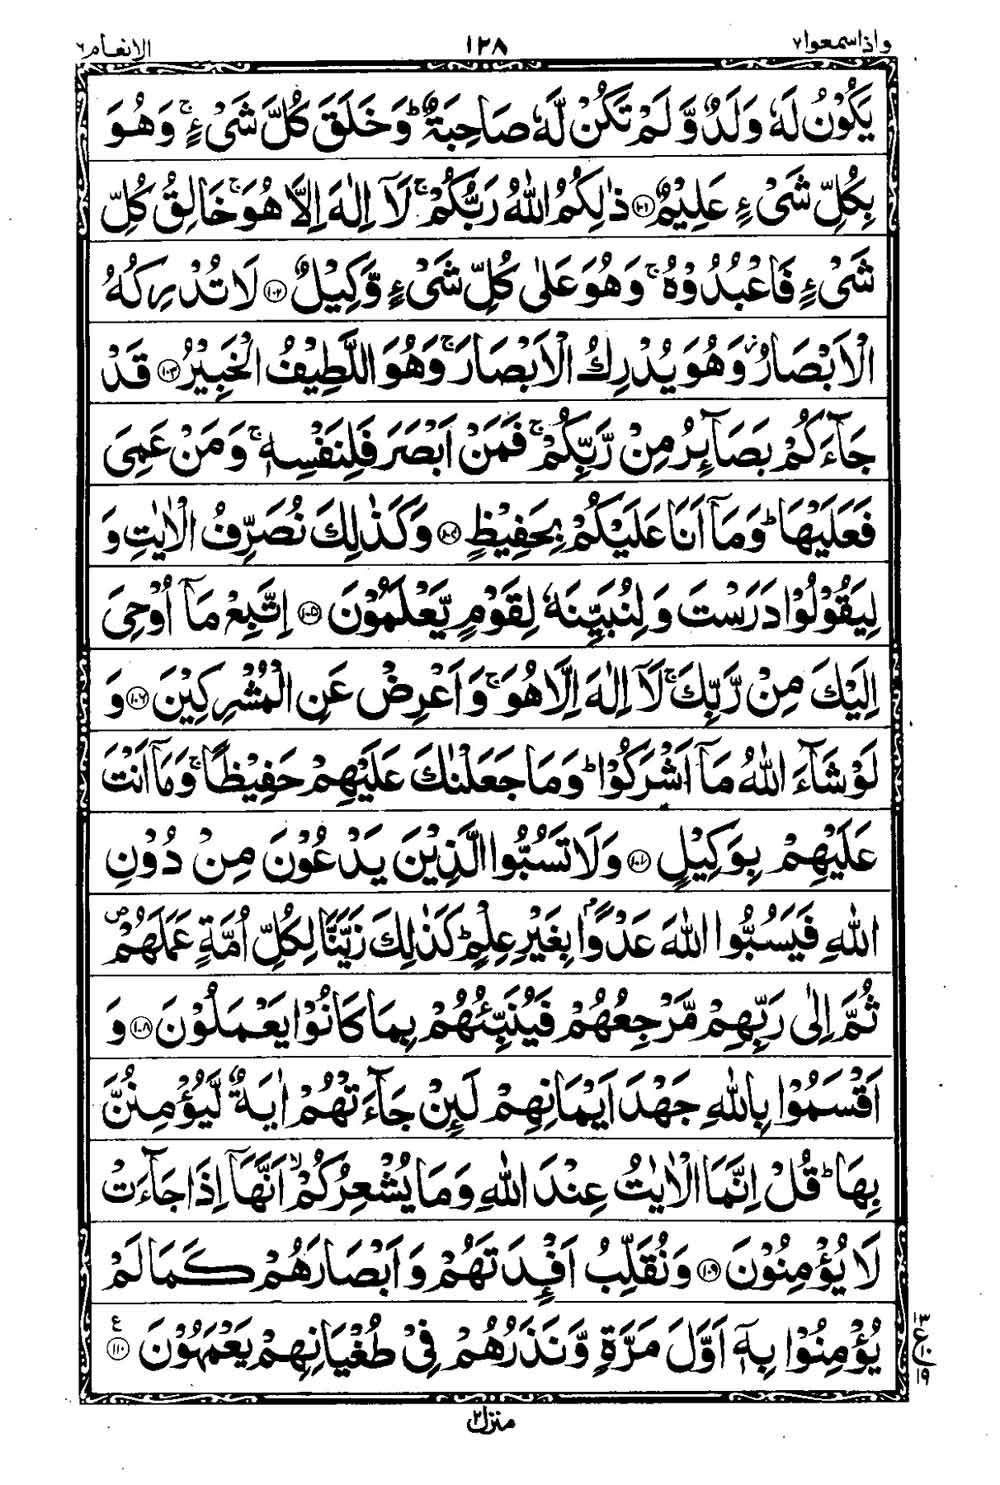 واذاسمعوا٧ ١٢٨ الانعام٦
يَكُوْنُ لَهٗ وَلَدٌ وَّ لَمْ تَكُنْ لَّهٗ صَاحِبَةٌ ؕ وَ خَلَقَ كُلَّ شَیْءٍ ۚ وَ هُوَ
بِكُلِّ شَیْءٍ عَلِیْمٌ ﴿۱۰۱﴾ ذٰلِكُمُ اللّٰهُ رَبُّكُمْ ۚ لَاۤ اِلٰهَ اِلَّا هُوَ ۚ خَالِقُ كُلِّ
شَیْءٍ فَاعْبُدُوْهُ ۚ وَ هُوَ عَلٰی كُلِّ شَیْءٍ وَّكِیْلٌ ﴿۱۰۲﴾ لَا تُدْرِكُهُ
الْاَبْصَارُ ؗ وَ هُوَ یُدْرِكُ الْاَبْصَارَ ۚ وَ هُوَ اللَّطِیْفُ الْخَبِیْرُ ﴿۱۰۳﴾ قَدْ
جَآءَكُمْ بَصَآىِٕرُ مِنْ رَّبِّكُمْ ۚ فَمَنْ اَبْصَرَ فَلِنَفْسِهٖ ۚ وَ مَنْ عَمِیَ
فَعَلَیْهَا ؕ وَ مَاۤ اَنَا عَلَیْكُمْ بِحَفِیْظٍ ﴿۱۰۴﴾ وَ كَذٰلِكَ نُصَرِّفُ الْاٰیٰتِ وَ
لِیَقُوْلُوْا دَرَسْتَ وَ لِنُبَیِّنَهٗ لِقَوْمٍ یَّعْلَمُوْنَ ﴿۱۰۵﴾ اِتَّبِعْ مَاۤ اُوْحِیَ
اِلَیْكَ مِنْ رَّبِّكَ ۚ لَاۤ اِلٰهَ اِلَّا هُوَ ۚ وَ اَعْرِضْ عَنِ الْمُشْرِكِیْنَ ﴿۱۰۶﴾ وَ
لَوْ شَآءَ اللّٰهُ مَاۤ اَشْرَكُوْا ؕ وَ مَا جَعَلْنٰكَ عَلَیْهِمْ حَفِیْظًا ۚ وَ مَاۤ اَنْتَ
عَلَیْهِمْ بِوَكِیْلٍ ﴿۱۰۷﴾ وَ لَا تَسُبُّوا الَّذِیْنَ یَدْعُوْنَ مِنْ دُوْنِ
اللّٰهِ فَیَسُبُّوا اللّٰهَ عَدْوًۢا بِغَیْرِ عِلْمٍ ؕ كَذٰلِكَ زَیَّنَّا لِكُلِّ اُمَّةٍ عَمَلَهُمْ ۪
ثُمَّ اِلٰی رَبِّهِمْ مَّرْجِعُهُمْ فَیُنَبِّئُهُمْ بِمَا كَانُوْا یَعْمَلُوْنَ ﴿۱۰۸﴾ وَ
اَقْسَمُوْا بِاللّٰهِ جَهْدَ اَیْمَانِهِمْ لَىِٕنْ جَآءَتْهُمْ اٰیَةٌ لَّیُؤْمِنُنَّ
بِهَا ؕ قُلْ اِنَّمَا الْاٰیٰتُ عِنْدَ اللّٰهِ وَ مَا یُشْعِرُكُمْ ۙ اَنَّهَاۤ اِذَا جَآءَتْ
لَا یُؤْمِنُوْنَ ﴿۱۰۹﴾ وَ نُقَلِّبُ اَفْـِٕدَتَهُمْ وَ اَبْصَارَهُمْ كَمَا لَمْ
یُؤْمِنُوْا بِهٖۤ اَوَّلَ مَرَّةٍ وَّ نَذَرُهُمْ فِیْ طُغْیَانِهِمْ یَعْمَهُوْنَ ﴿۱۱۰﴾ ع
١٣ ع ١٠ ١٩
منزل٢